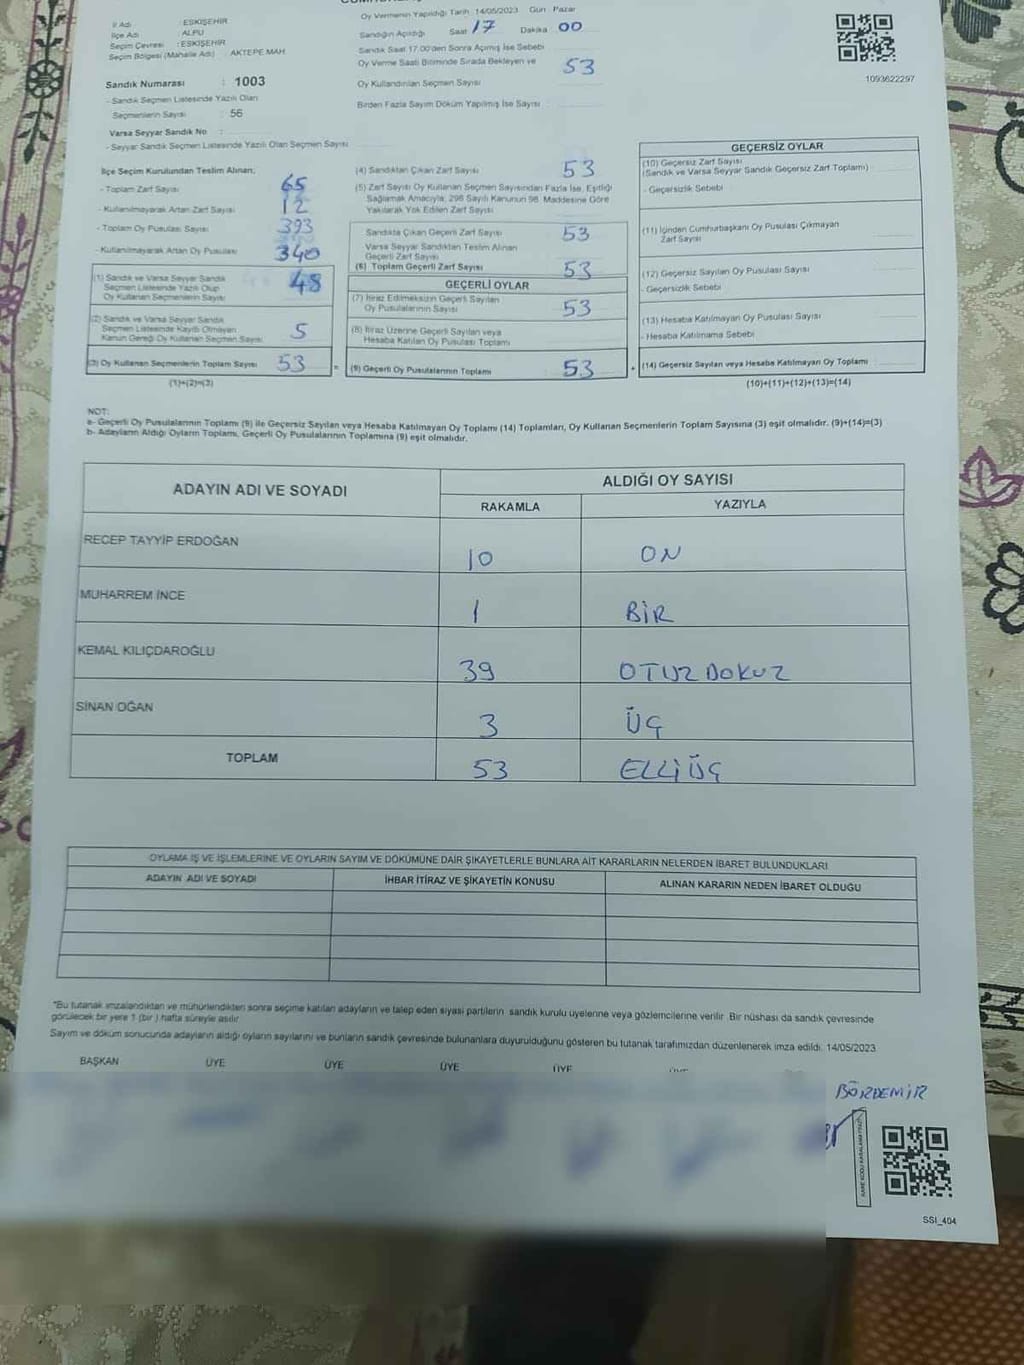 Oy Vermenin Yapıldığı Tarih : 14/05/2023 Gün : Pazar
İl Adı : ESKİŞEHİR
İlçe Adı : ALPU
Seçim Çevresi : ESKİŞEHİR
Seçim Bölgesi (Mahalle Adı) : AKTEPE MAH.
Sandığın Açıldığı Saat 17 Dakika 00
Sandık Saat 17.00'den Sonra Açmış İse Sebebi
Oy Verme Saati Bitiminde Sırada Bekleyen ve 53
Oy Kullandırılan Seçmen Sayısı
Birden Fazla Sayım Döküm Yapılmış İse Sayısı :
1093622297
Sandık Numarası : 1003
- Sandık Seçmen Listesinde Yazılı Olan
Seçmenlerin Sayısı : 56
Varsa Seyyar Sandık No :
- Seyyar Sandık Seçmen Listesinde Yazılı Olan Seçmen Sayısı
İlçe Seçim Kurulundan Teslim Alınan;
- Toplam Zarf Sayısı 65
- Kullanılmayarak Artan Zarf Sayısı 12
- Toplam Oy Pusulası Sayısı 393
- Kullanılmayarak Artan Oy Pusulası 340
(1) Sandık ve Varsa Seyyar Sandık
Seçmen Listesinde Yazılı Olup
Oy Kullanan Seçmenlerin Sayısı 48
(2) Sandık ve Varsa Seyyar Sandık
Seçmen Listesinde Kayıtlı Olmayan
Kanun Gereği Oy Kullanan Seçmen Sayısı 5
(3) Oy Kullanan Seçmenlerin Toplam Sayısı 53
(1)+(2)=(3)
(4) Sandıktan Çıkan Zarf Sayısı 53
(5) Zarf Sayısı Oy Kullanan Seçmen Sayısından Fazla İse, Eşitliği
Sağlamak Amacıyla, 298 Sayılı Kanunun 98. Maddesine Göre
Yakılarak Yok Edilen Zarf Sayısı
Sandıkta Çıkan Geçerli Zarf Sayısı 53
Varsa Seyyar Sandıktan Teslim Alınan
Geçerli Zarf Sayısı
(6) Toplam Geçerli Zarf Sayısı 53
GEÇERLİ OYLAR
(7) İtiraz Edilmeksizin Geçerli Sayılan
Oy Pusulalarının Sayısı 53
(8) İtiraz Üzerine Geçerli Sayılan veya
Hesaba Katılan Oy Pusulası Toplamı
(9) Geçerli Oy Pusulalarının Toplamı : 53
GEÇERSİZ OYLAR
(10) Geçersiz Zarf Sayısı
(Sandık ve Varsa Seyyar Sandık Geçersiz Zarf Toplamı)
- Geçersizlik Sebebi
(11) İçinden Cumhurbaşkanı Oy Pusulası Çıkmayan
Zarf Sayısı
(12) Geçersiz Sayılan Oy Pusulası Sayısı
- Geçersizlik Sebebi
(13) Hesaba Katılmayan Oy Pusulası Sayısı
- Hesaba Katılmama Sebebi
(14) Geçersiz Sayılan veya Hesaba Katılmayan Oy Toplamı :
(10)+(11)+(12)+(13)=(14)
NOT:
a- Geçerli Oy Pusulalarının Toplamı (9) ile Geçersiz Sayılan veya Hesaba Katılmayan Oy Toplamı (14) Toplamları, Oy Kullanan Seçmenlerin Toplam Sayısına (3) eşit olmalıdır. (9)+(14)=(3)
b- Adayların Aldığı Oyların Toplamı, Geçerli Oy Pusulalarının Toplamına (9) eşit olmalıdır.
ADAYIN ADI VE SOYADI
ALDIĞI OY SAYISI
RAKAMLA YAZIYLA
RECEP TAYYİP ERDOĞAN 10 ON
MUHARREM İNCE 1 BİR
KEMAL KILIÇDAROĞLU 39 OTUZ DOKUZ
SİNAN OĞAN 3 ÜÇ
TOPLAM 53 ELLİ ÜÇ
OYLAMA İŞ VE İŞLEMLERİNE VE OYLARIN SAYIM VE DÖKÜMÜNE DAİR ŞİKAYETLERLE BUNLARA AİT KARARLARIN NELERDEN İBARET BULUNDUKLARI
ADAYIN ADI VE SOYADI İHBAR İTİRAZ VE ŞİKAYETİN KONUSU ALINAN KARARIN NEDEN İBARET OLDUĞU
*Bu tutanak imzalandıktan ve mühürlendikten sonra seçime katılan adayların ve talep eden siyasi partilerin sandık kurulu üyelerine veya gözlemcilerine verilir. Bir nüshası da sandık çevresinde
görülecek bir yere 1 (bir) hafta süreyle asılır.
Sayım ve döküm sonucunda adayların aldığı oyların sayılarını ve bunların sandık çevresinde bulunanlara duyurulduğunu gösteren bu tutanak tarafımızdan düzenlenerek imza edildi. 14/05/2023
BAŞKAN ÜYE ÜYE ÜYE ÜYE
BÖRDEMİR
SSI_404